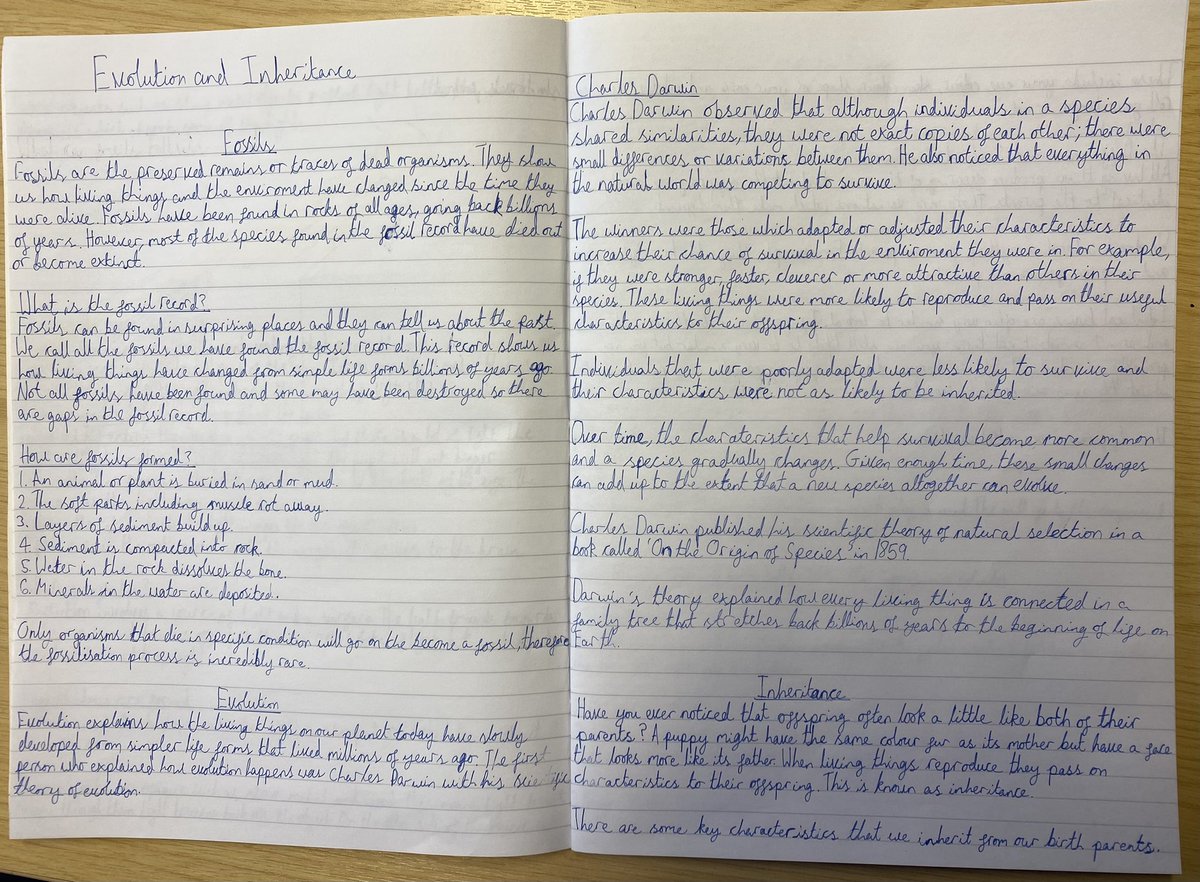 Evolution and Inheritance
Fossils
Fossils are the preserved remains or traces of dead organisms. They show
us how living things and the enviroment have changed since the time they
were alive. Fossils have been found in rocks of all ages, going back billions
of years. However, most of the species found in the fossil record have died out
or become extinct.
What is the fossil record?
Fossils can be found in surprising places and they can tell us about the past.
We call all the fossils we have found the fossil record. This record shows us
how living things have changed from simple life forms billions of years ago.
Not all fossils have been found and some may have been destroyed so there
are gaps in the fossil record.
How are fossils formed?
1. An animal or plant is buried in sand or mud.
2. The soft parts including muscle rot away.
3. Layers of sediment build up.
4. Sediment is compacted into rock.
5. Water in the rock dissolves the bone.
6. Minerals in the water are deposited.
Only organisms that die in specific condition will go on the become a fossil, therefore
the fossilisation process is incredibly rare.
Evolution
Evolution explains how the living things on our planet today have slowly
developed from simpler life forms that lived millions of years ago. The first
person who explained how evolution happens was Charles Darwin with his scientific
theory of evolution.
Charles Darwin
Charles Darwin observed that although individuals in a species
shared similarities, they were not exact copies of each other; there were
small differences or variations between them. He also noticed that everything in
the natural world was competing to survive.
The winners were those which adapted or adjusted their characteristics to
increase their chance of survival in the enviroment they were in. For example,
if they were stronger, faster, cleverer or more attractive than others in their
species. These living things were more likely to reproduce and pass on their useful
characteristics to their offspring.
Individuals that were poorly adapted were less likely to survive and
their characteristics were not as likely to be inherited.
Over time, the charateristics that help survival become more common
and a species gradually changes. Given enough time, these small changes
can add up to the extent that a new species altogether can evolve.
Charles Darwin published his scientific theory of natural selection in a
book called 'On the Origin of Species' in 1859.
Darwin's theory explained how every living thing is connected in a
family tree that stretches back billions of years to the beginning of life on
Earth.
Inheritance
Have you ever noticed that offspring often look a little like both of their
parents? A puppy might have the same colour fur as its mother but have a face
that looks more like its father. When living things reproduce they pass on
characteristics to their offspring. This is known as inheritance.
There are some key characteristics that we inherit from our birth parents.